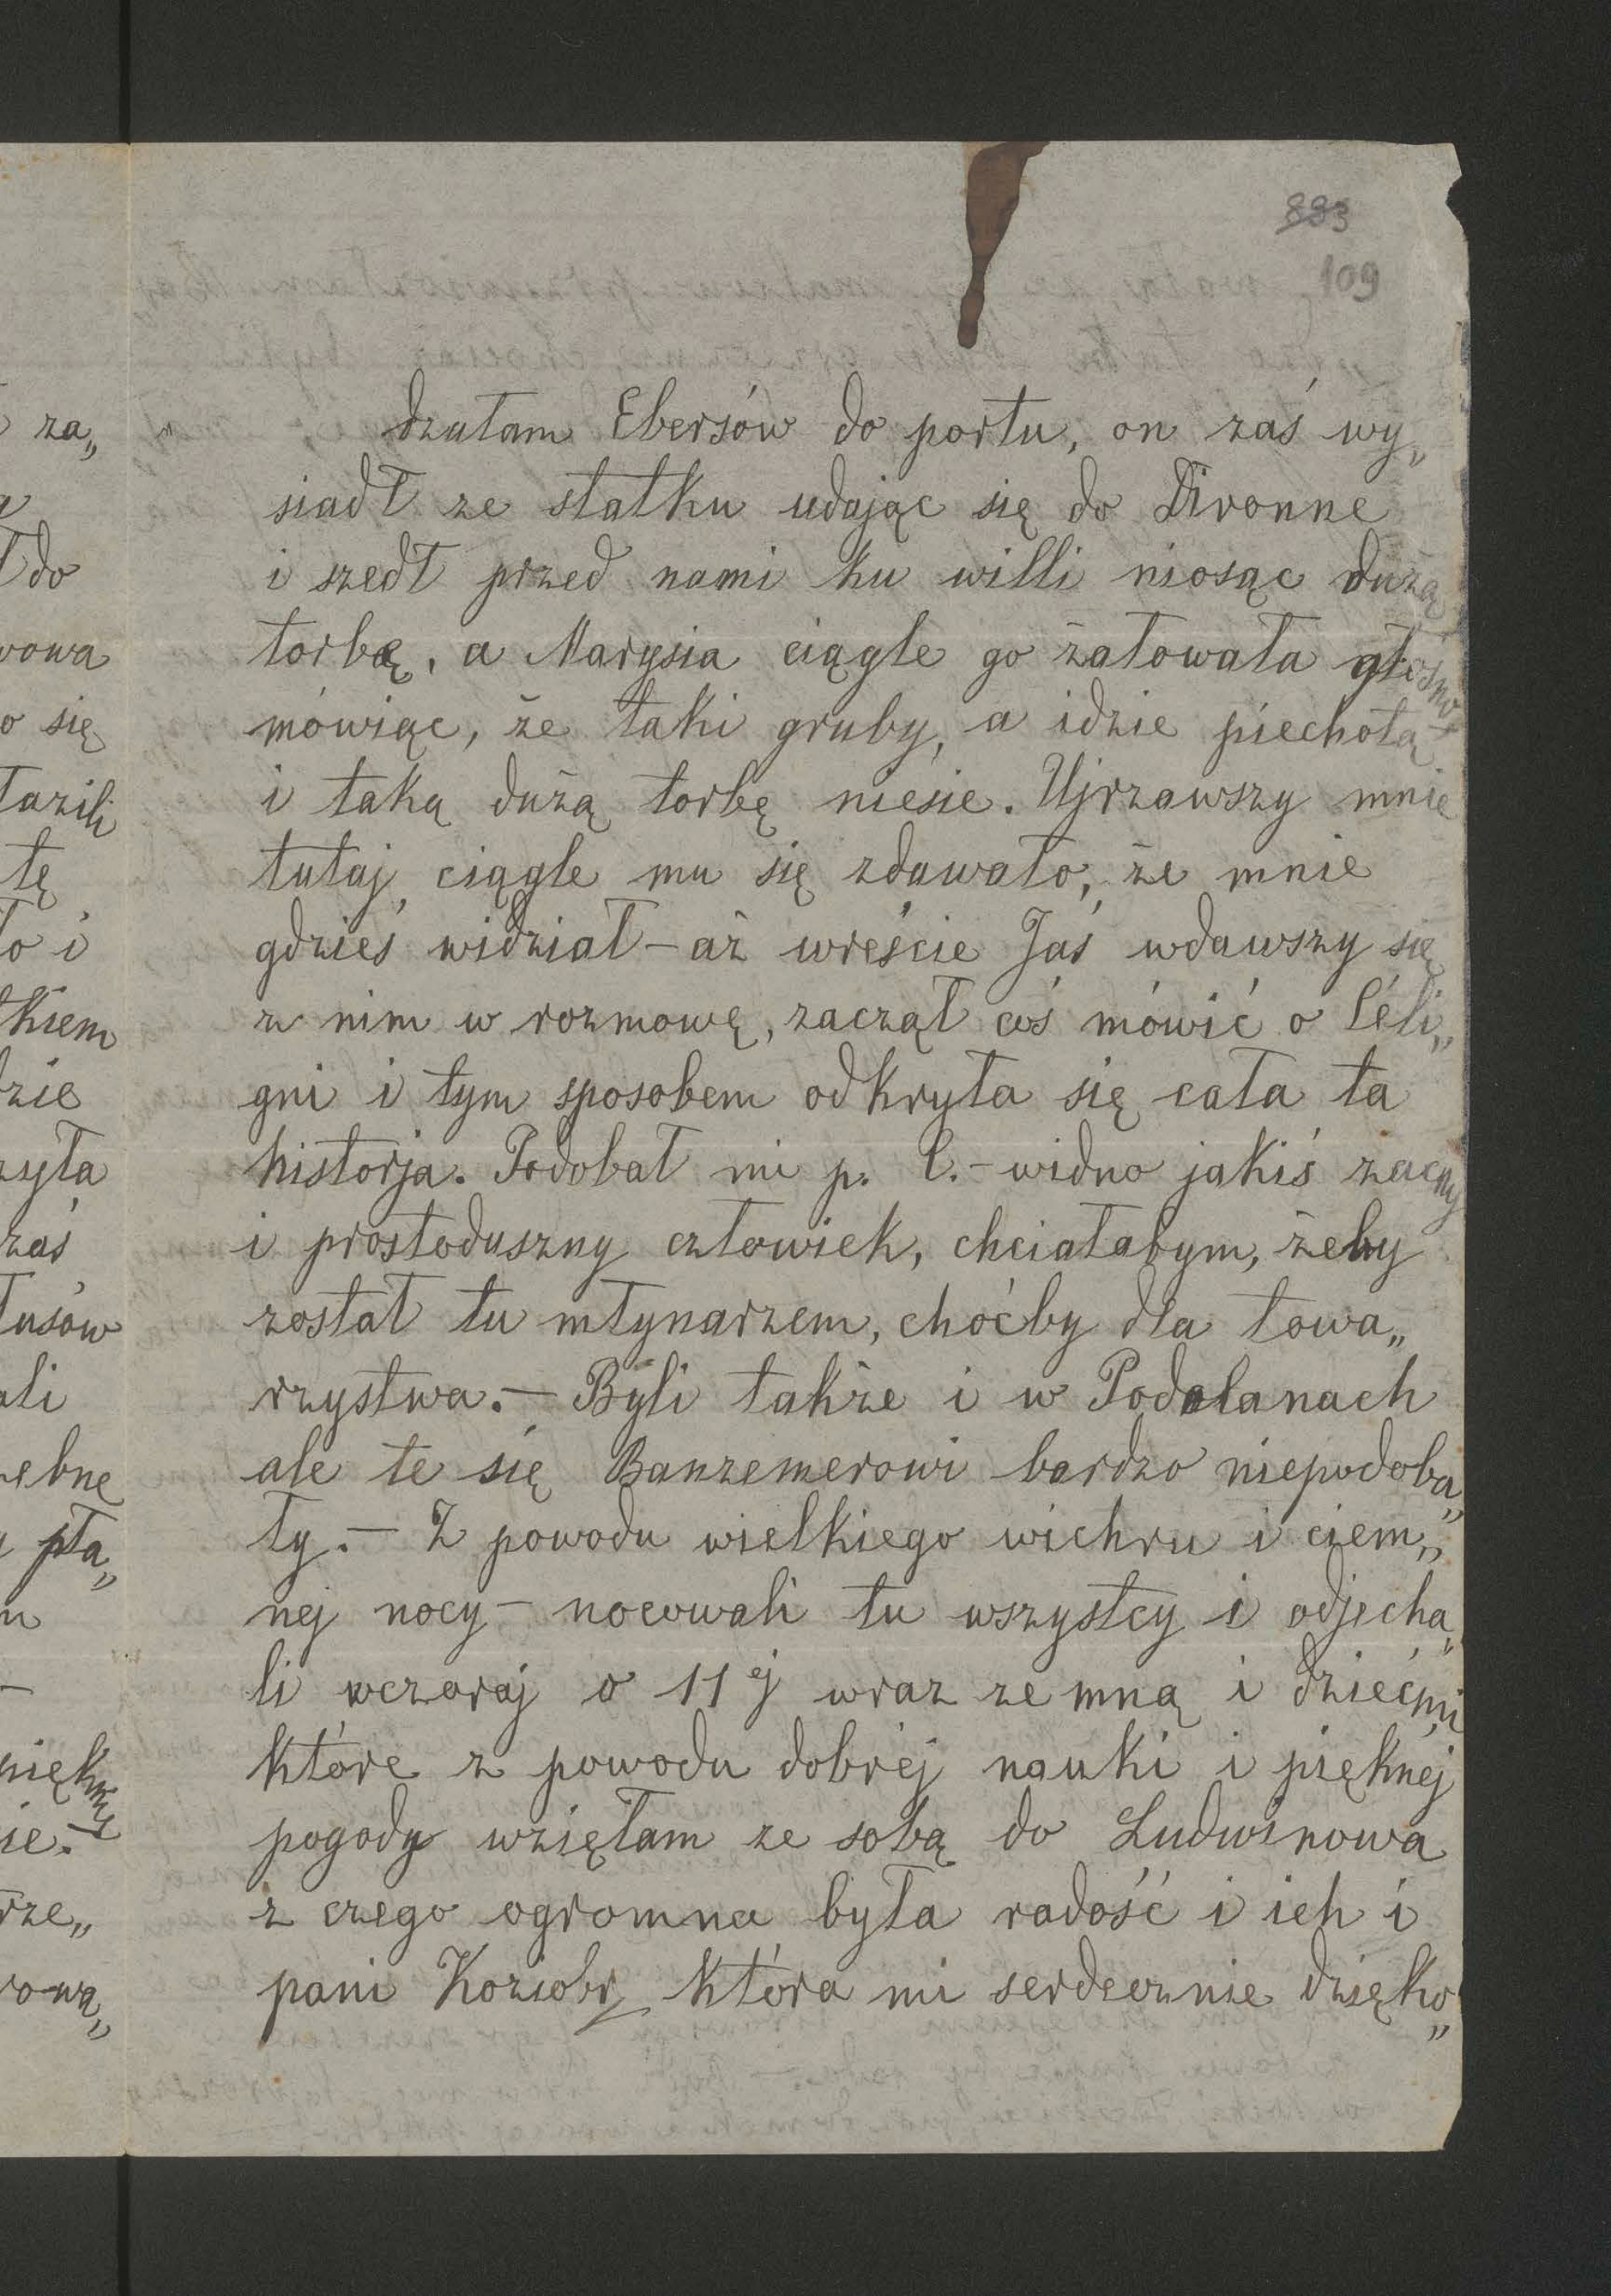 893
109
dzałam Ebersów do portu, on zaś wy„
siadł ze statku udając się do Divonne
i szedł przed nami ku willi niosąc dużą
torbę, a Marysia ciągle go żałowała głośno
mówiąc, że taki gruby, a idzie piechotą
i taką dużą torbę niesie. Ujrzawszy mnie
tutaj, ciągle mu się zdawało, że mnie
gdzieś widział – aż wreście Jaś wdawszy się
z nim w rozmowę, zaczął coś mówić o Céli„
gni i tym sposobem odkryła się cała ta
historja. Podobał mi p. C. – widno jakiś zacny
i prostoduszny człowiek, chciałabym, żeby
został tu młynarzem, choćby dla towa„
rzystwa. – Byli także i w Podolanach
ale te się Banzemerowi bardzo niepodoba„
ły. – Z powodu wielkiego wichru i ciem„
nej nocy – nocowali tu wszyscy i odjecha„
li wczoraj o 11ej wraz ze mną i dziećmi
które z powodu dobréj nauki i pięknéj
pogody wzięłam ze sobą do Ludwinowa
z czego ogromna była radość i ich i
pani Koziobr, która mi serdecznie dzięko„
za„
do
wowa
o się
łazili
tę
to i
kiem
dzie
zyła
zaś
tusów
ali
zebne
pła„
m
pięknej
ie.
rze„